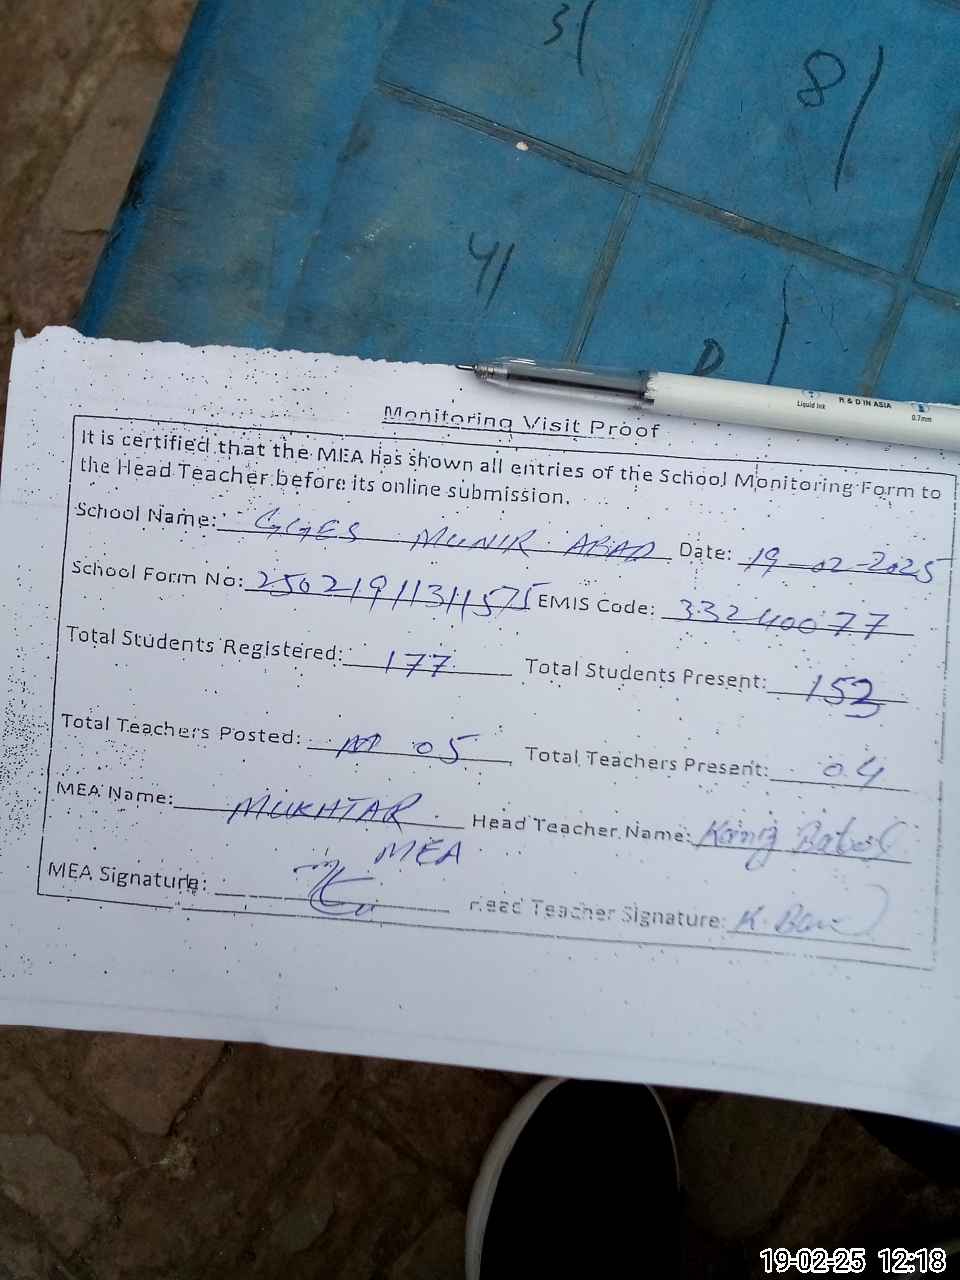 31
81
41
Liquid Ink R & D IN ASIA 0.7mm
Monitoring Visit Proof
It is certified that the MEA has shown all entries of the School Monitoring Form to
the Head Teacher before its online submission.
School Name: GGES MUNIR ABAD Date: 19-02-2025
School Form No: 2502191131575 EMIS Code: 33240077
Total Students Registered: 177 Total Students Present: 153
Total Teachers Posted: 05 Total Teachers Present: 04
MEA Name: MUKHTAR Head Teacher Name: Kaniz
MEA
MEA Signature: Head Teacher Signature: K.
19-02-25 12:18